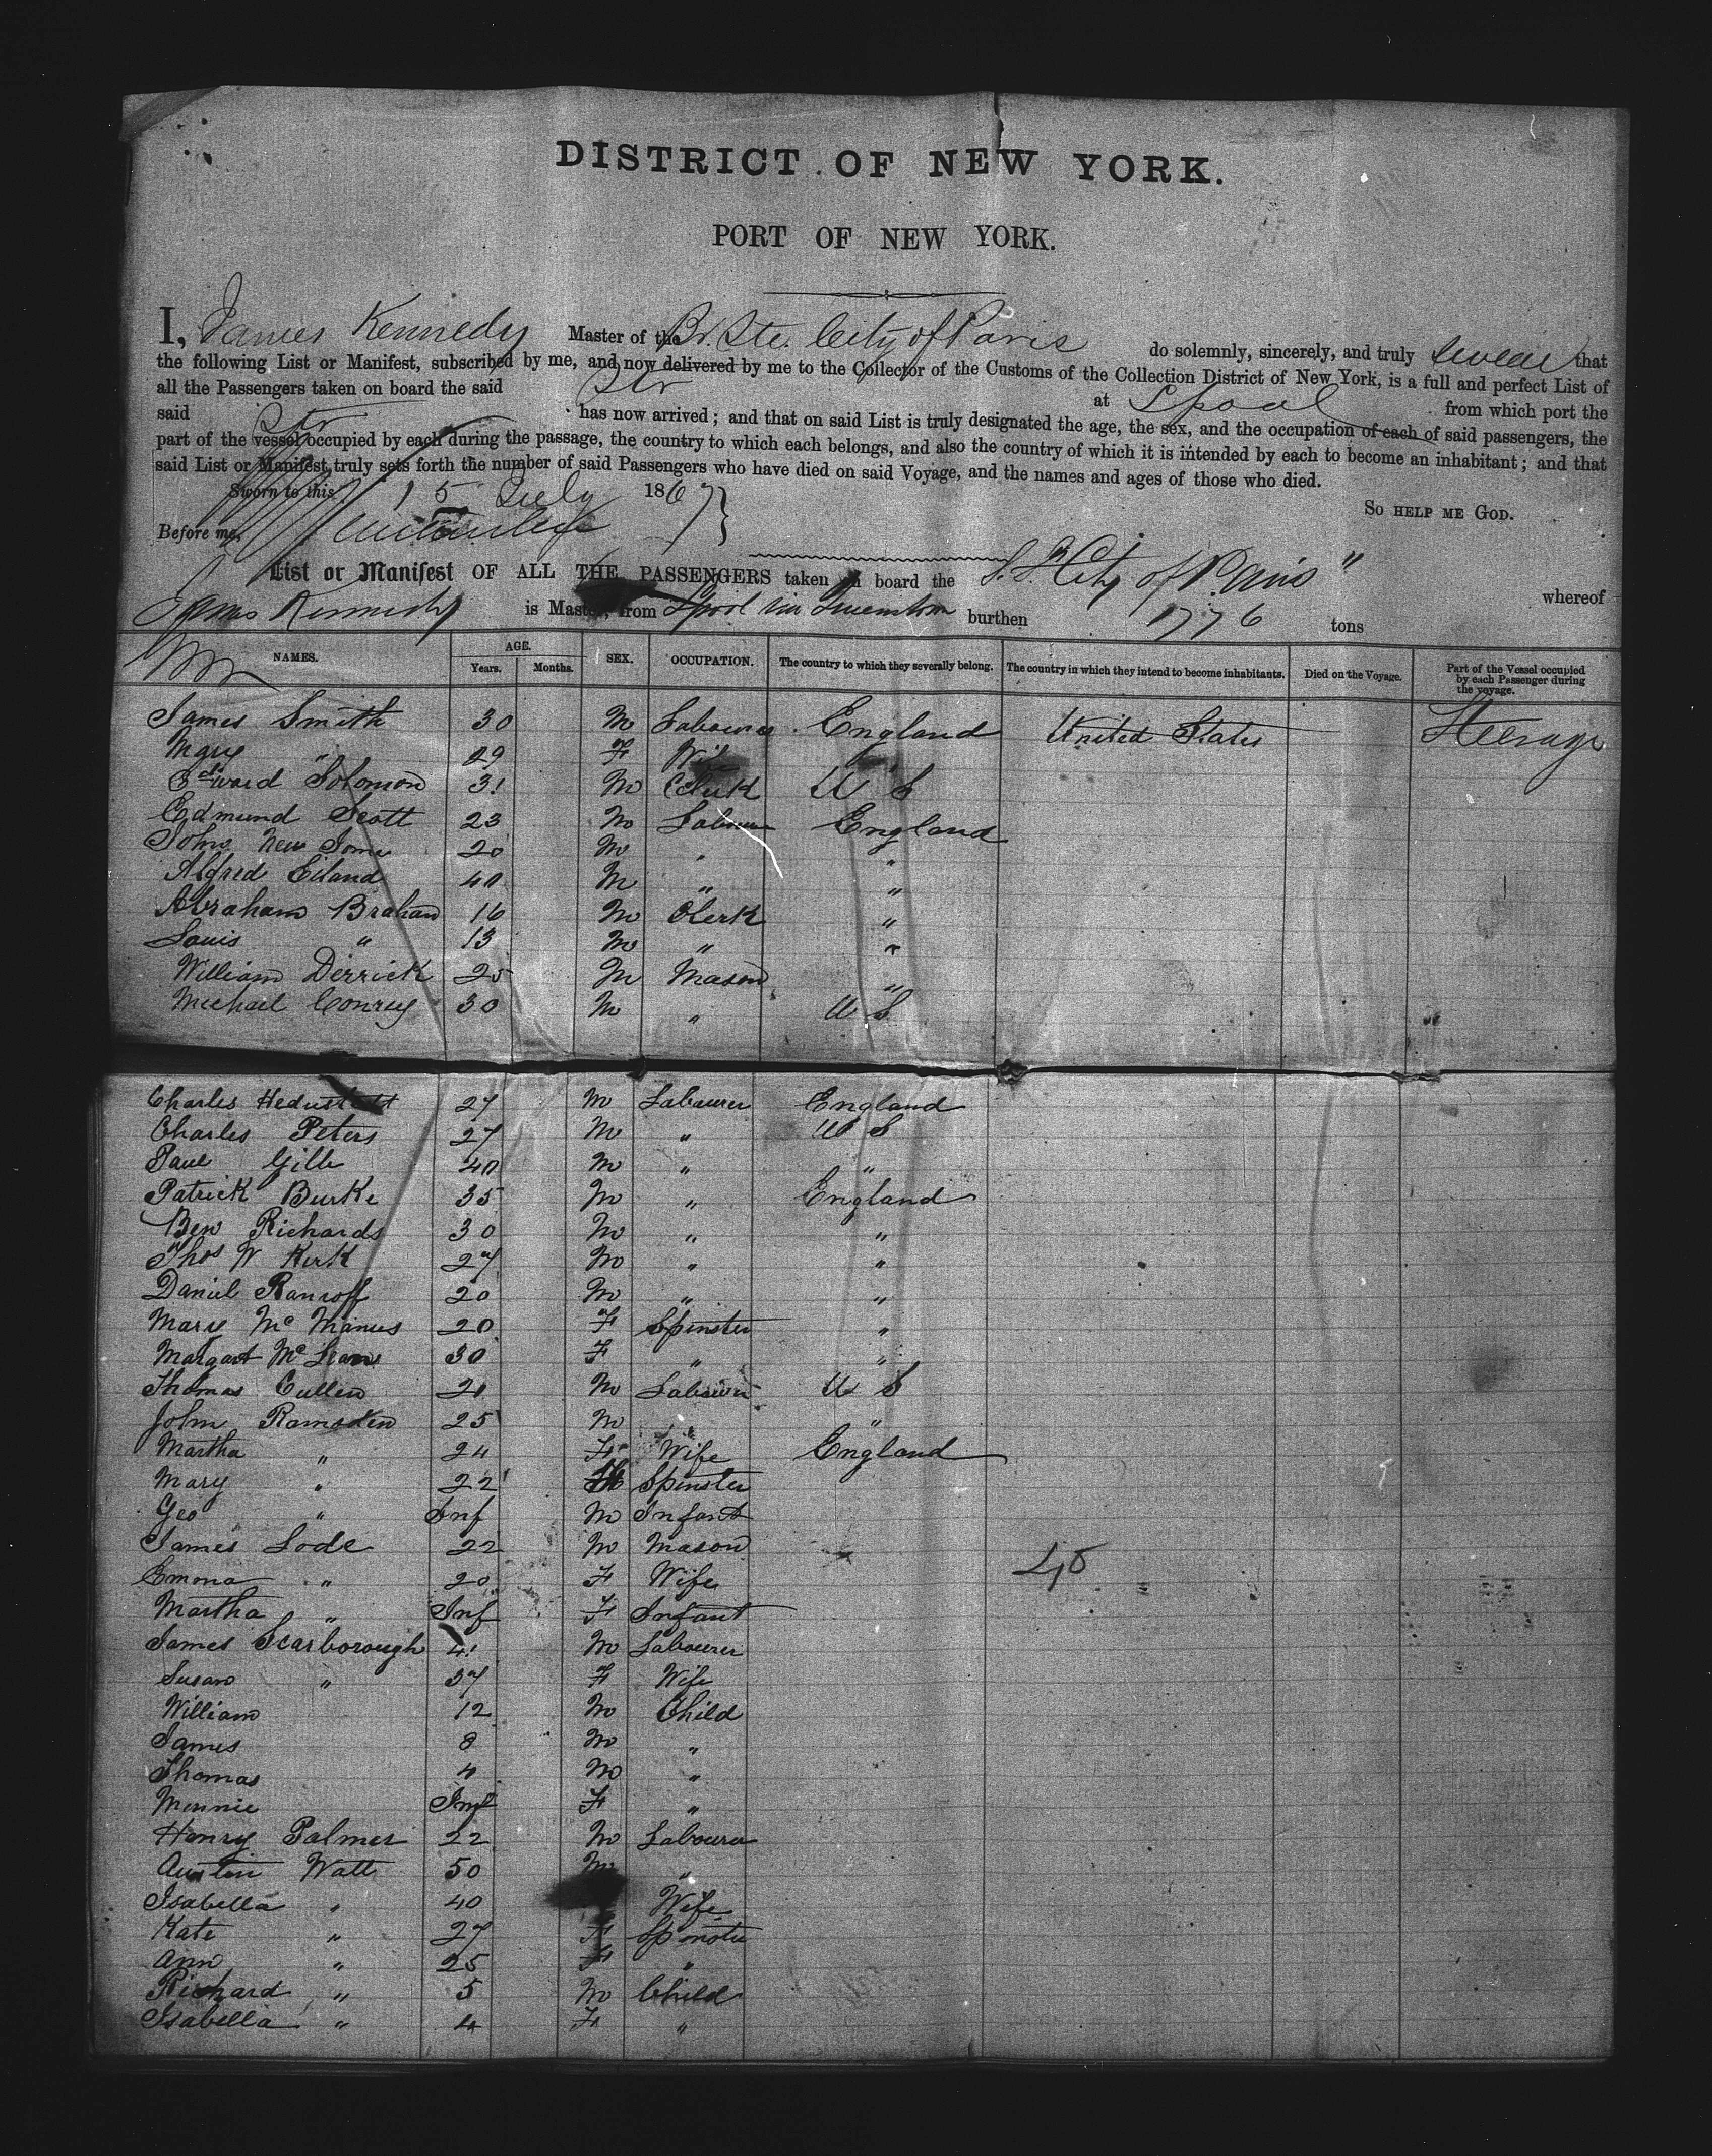 DISTRICT OF NEW YORK.
PORT OF NEW YORK.
I, James Kennedy Master of the Br. Str. City of Paris do solemnly, sincerely, and truly swear that
the following List or Manifest, subscribed by me, and now delivered by me to the Collector of the Customs of the Collection District of New York, is a full and perfect List of
all the Passengers taken on board the said Str at Lpool from which port the
said Str has now arrived; and that on said List is truly designated the age, the sex, and the occupation of each of said passengers, the
part of the vessel occupied by each during the passage, the country to which each belongs, and also the country of which it is intended by each to become an inhabitant; and that
said List or Manifest truly sets forth the number of said Passengers who have died on said Voyage, and the names and ages of those who died.
Sworn to this 15 July 1867 So HELP ME GOD.
Before me,
List or Manifest OF ALL THE PASSENGERS taken on board the S.S. "City of Paris" whereof
James Kennedy is Master, from Lpool via Queenstown burthen 1776 tons
NAMES. AGE. Years. Months. SEX. OCCUPATION. The country to which they severally belong. The country in which they intend to become inhabitants. Died on the Voyage. Part of the Vessel occupied by each Passenger during the voyage.
James Smith 30 M Labourer England United States Steerage
Mary " 29 F Wife "
Edward Solomon 31 M Clerk U S
Edmund Scott 23 M Labourer England
John New 20 M " "
Alfred Eiland 40 M " "
Abraham Braham 16 M Clerk "
Louis " 13 M " "
William Derrick 25 M Mason "
Michael Conroy 30 M " U S
Charles 27 M Labourer England
Charles Peters 27 M " U S
Paul Gill 40 M " "
Patrick Burke 35 M " England
Ben Richards 30 M " "
Thos W Kirk 27 M " "
Daniel 20 M " "
Mary McManus 20 F Spinster "
Margaret McLean 30 F " "
Thomas Cullen 21 M Labourer U S
John Ramsden 25 M "
Martha " 24 F Wife England
Mary " 22 Spinster
Geo " Inf M Infant
James Lode 22 M Mason
Emma " 20 F Wife
Martha " Inf F Infant
James Scarborough 41 M Labourer
Susan " 37 F Wife
William 12 M Child
James 8 M "
Thomas 4 M "
Minnie Inft F "
Henry Palmer 22 M Labourer
Austin Watt 50 M "
Isabella " 40 Wife
Kate " 27 F Spinster
Ann " 25 F "
Richard " 5 M Child
Isabella " 4 F "